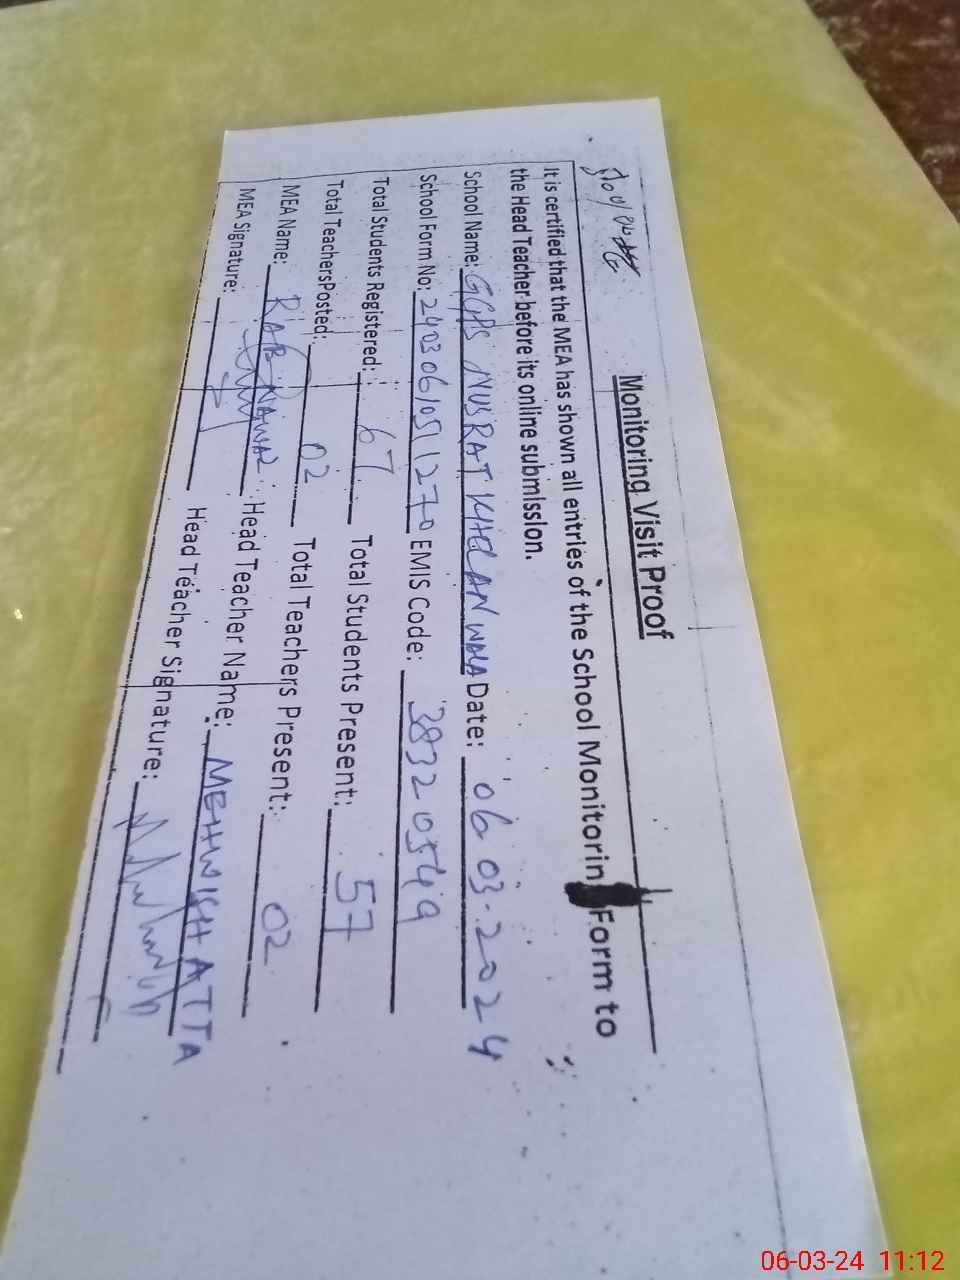 Monitoring Visit Proof
It is certified that the MEA has shown all entries of the School Monitorin Form to
the Head Teacher before its online submission.
School Name: GGPS NUSRAT KHALANWALA Date: 06 03.2024
School Form No: 2403061051270 EMIS Code: 38320549
Total Students Registered: 67 Total Students Present: 57
Total TeachersPosted: 02 Total Teachers Present: 02
MEA Name: RAB NAWAZ Head Teacher Name: MEHWISH ATTA
MEA Signature: Head Teacher Signature:
06-03-24 11:12